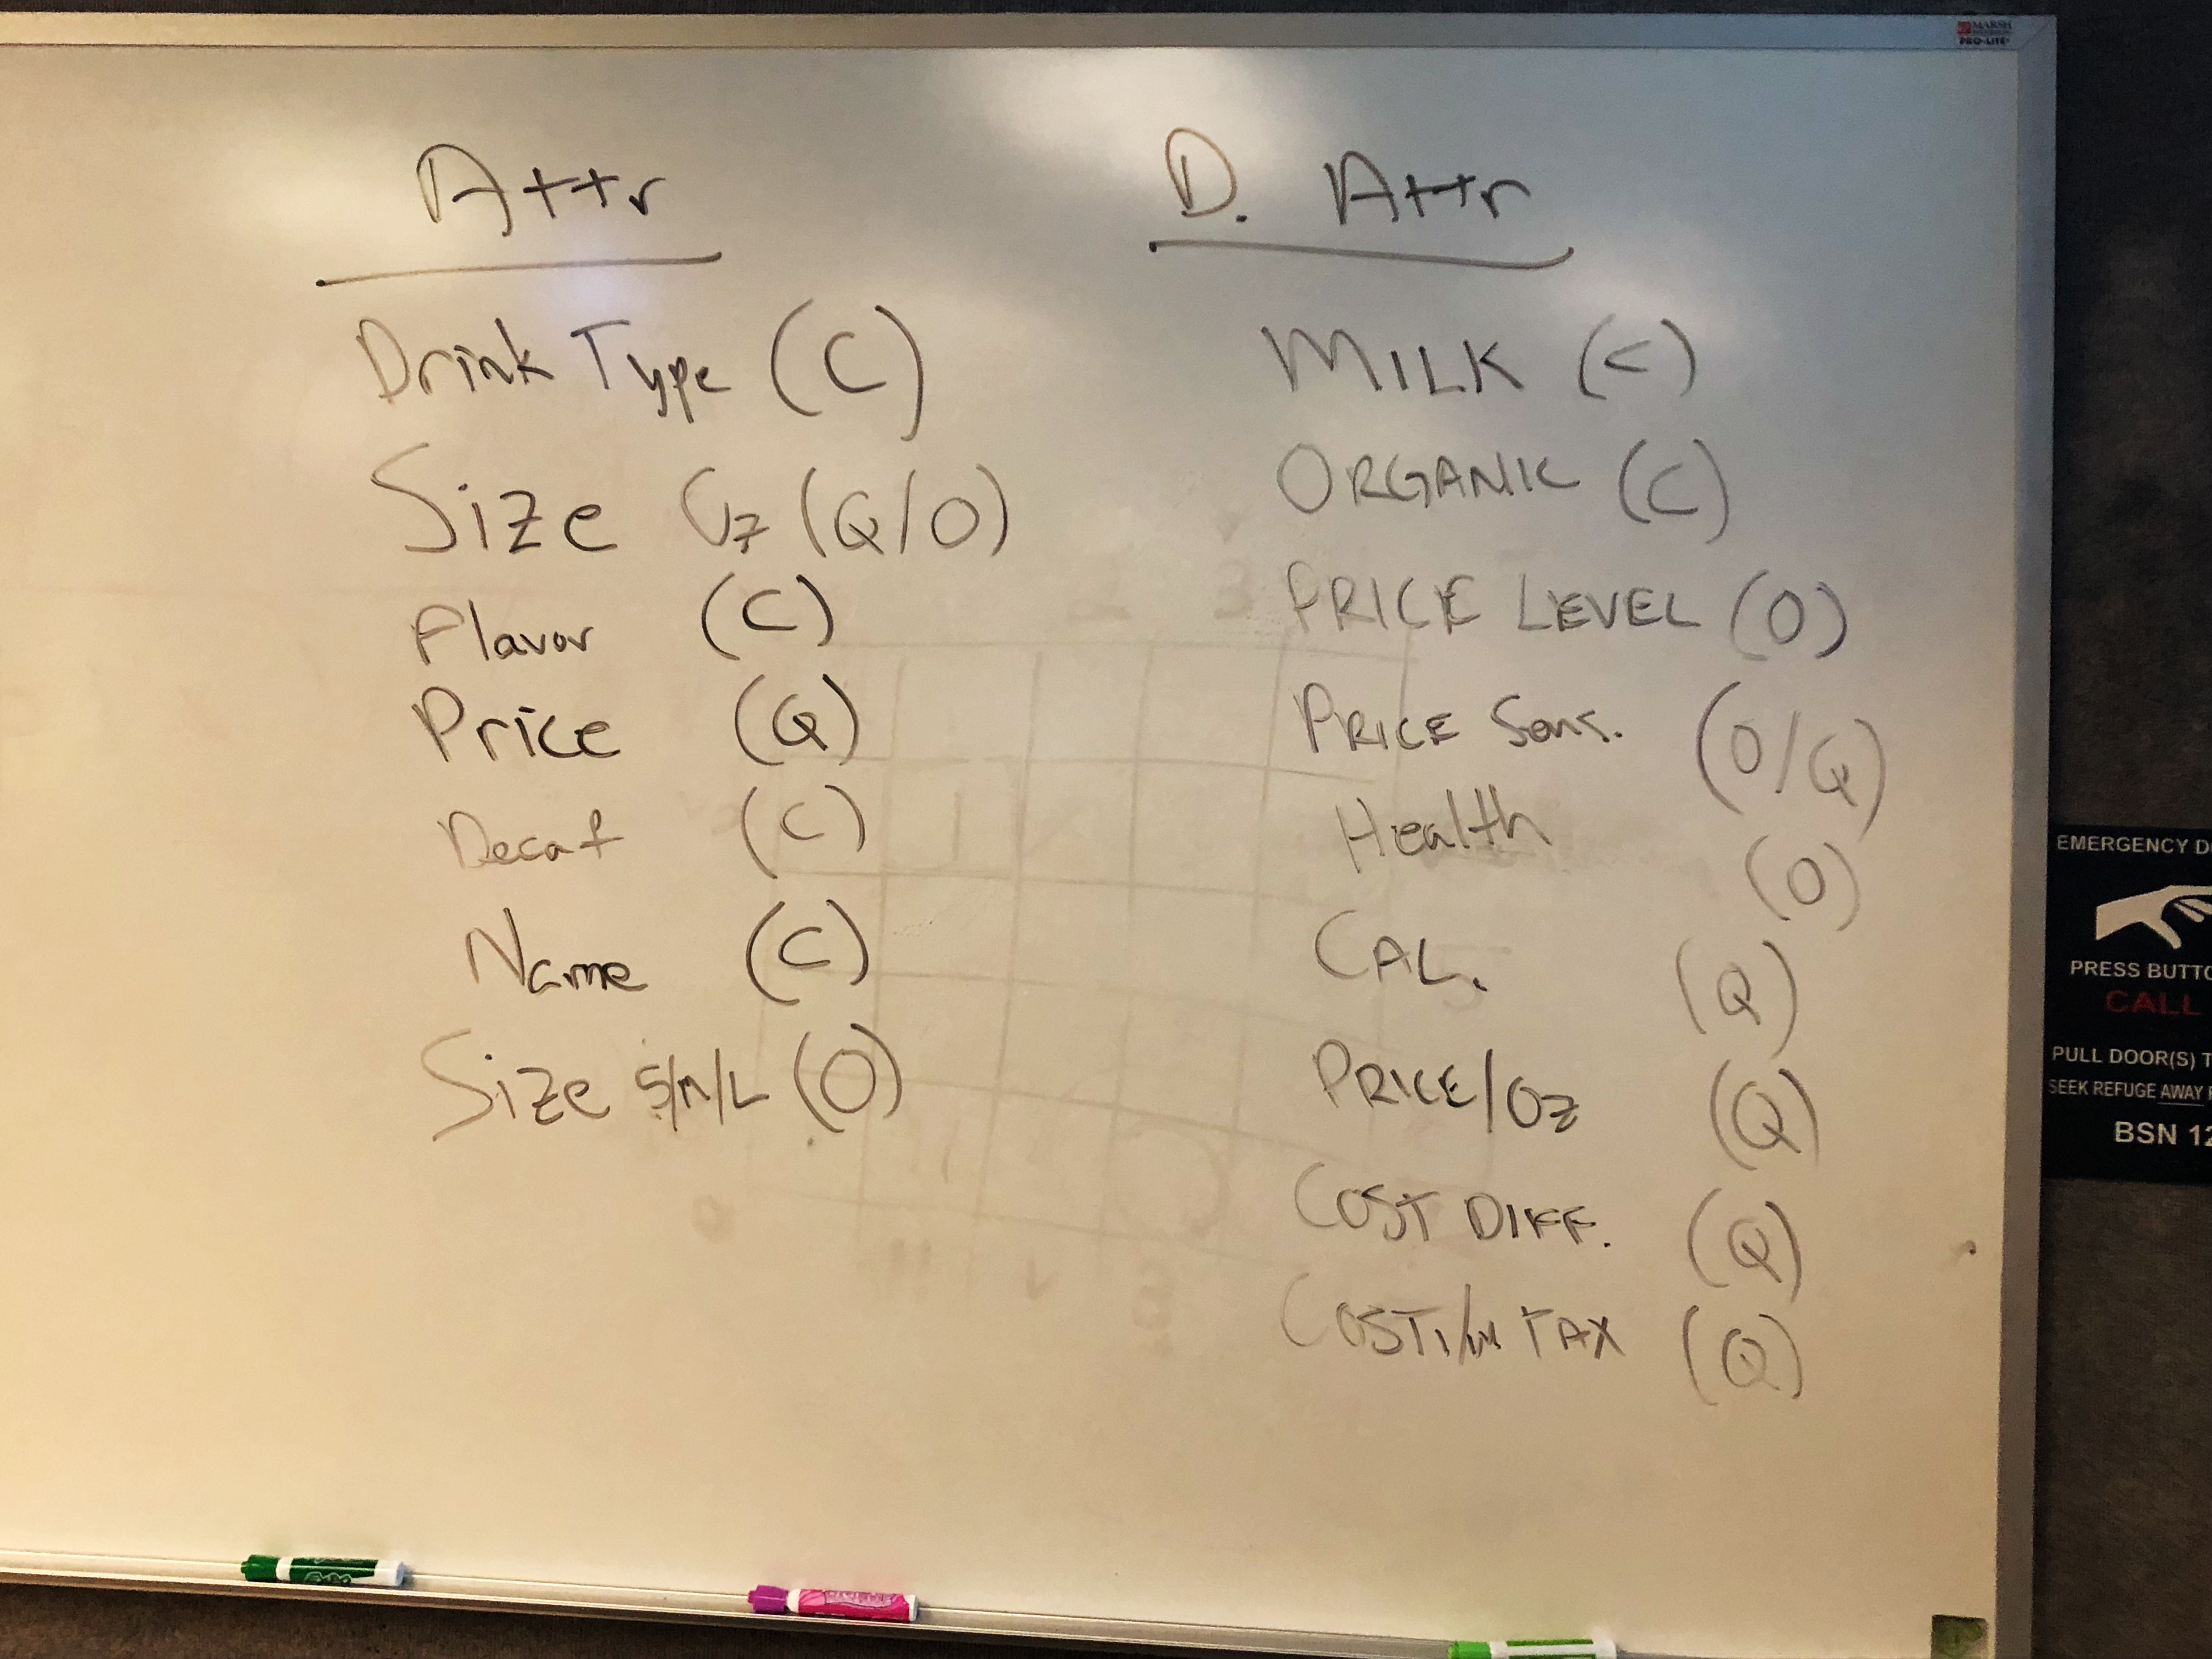 Attr
Drink Type (C)
Size Oz (Q/O)
Flavor (C)
Price (Q)
Decaf (C)
Name (C)
Size S/M/L (O)
D. Attr
MILK (C)
ORGANIC (C)
PRICE LEVEL (O)
PRICE Sens. (O/Q)
Health (O)
CAL. (Q)
PRICE/Oz (Q)
COST DIFF. (Q)
COST TAX (Q)
MARSH
PRO-LITE
EMERGENCY D
PRESS BUTTO
CALL
PULL DOOR(S) T
SEEK REFUGE AWAY
BSN 12